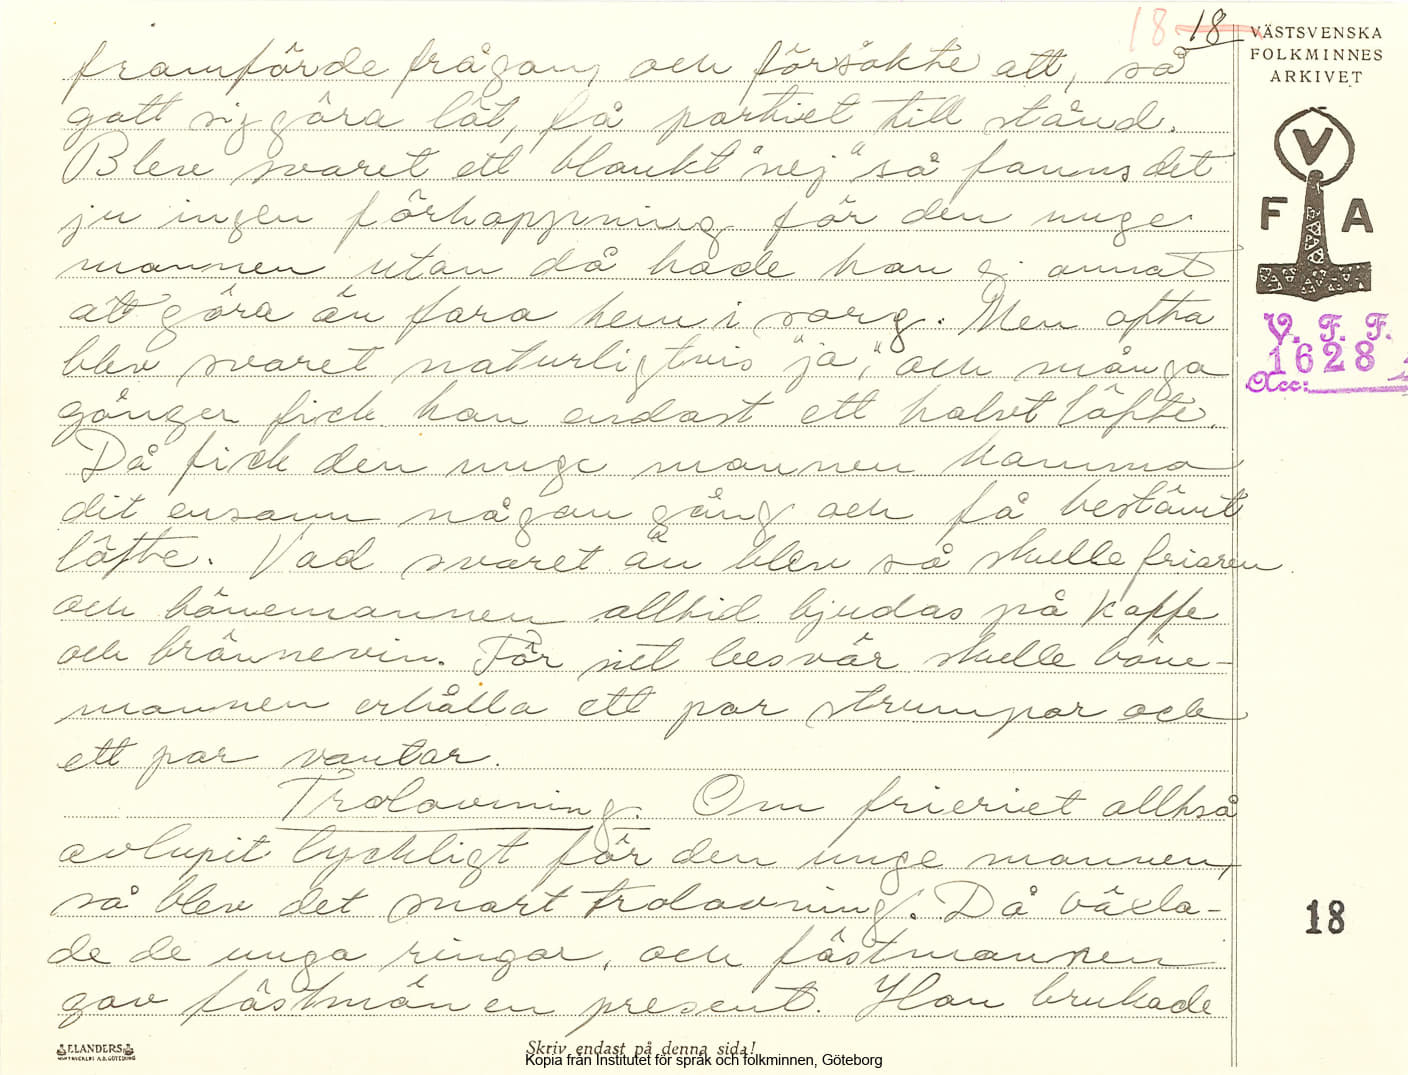 18 18
VÄSTSVENSKA
FOLKMINNES
ARKIVET
V
F A
V. F. F.
1628
Acc:
framförde frågan, och försökte att, så
gott sig göra lät, få partiet till stånd.
Blev svaret ett blankt "nej" så fanns det
ju ingen förhoppning för den unge
mannen utan då hade han ej annat
att göra än fara hem i sorg. Men ofta
blev svaret naturligtvis "ja", och många
gånger fick han endast ett halvt löfte.
Då fick den unge mannen komma
dit ensam någon gång och få bestämt
löfte. Vad svaret än blev så skulle friaren
och bönemannen alltid bjudas på kaffe
och brännevin. För sitt besvär skulle böne-
mannen erhålla ett par strumpor och
ett par vantar.
Trolovning. Om frieriet alltså
avlupit lyckligt för den unge mannen,
så blev det snart trolovning. Då växla-
de de unga ringar, och fästmannen
gav fästmön en present. Han brukade
18
ELANDERS
Skriv endast på denna sida!
Kopia från Institutet för språk och folkminnen, Göteborg